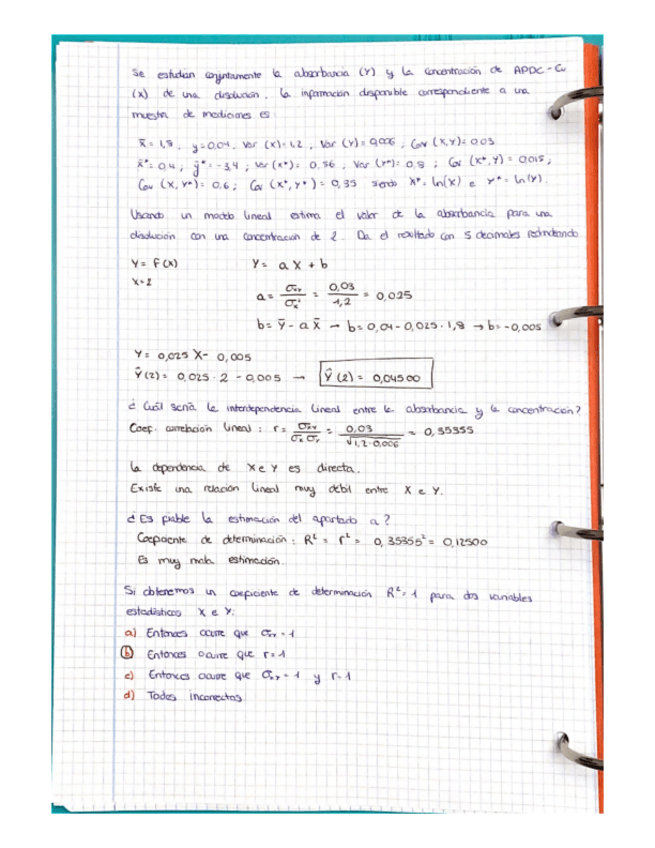 Se estudian conjuntamente la absorbancia (Y) y la concentración de APDC-Cu
(X) de una disolución. La información disponible correspondiente a una
muestra de mediciones es
x̄ = 1,8, y = 0,04, Var (X) = 1,2, Var (Y) = 0,006, Cov (X,Y) = 0,03
x̄* = 0,4; ȳ* = -3,4; Var (x*) = 0,56; Var (Y*) = 0,8; Cov (X*,Y) = 0,015;
Cov (X,Y*) = 0,6; Cov (X*,Y*) = 0,35 siendo X* = ln(X) e Y* = ln(Y).
Usando un modelo lineal estima el valor de la absorbancia para una
disolución con una concentración de 2. Da el resultado con 5 decimales redondeando
Y = F(X) Y = aX + b
X = 2
a = σxy / σx² = 0,03 / 1,2 = 0,025
b = ȳ - a x̄ → b = 0,04 - 0,025 · 1,8 → b = -0,005
Y = 0,025 X - 0,005
Ŷ(2) = 0,025 · 2 - 0,005 → Ŷ(2) = 0,04500
¿Cuál sería la interdependencia lineal entre la absorbancia y la concentración?
Coef. correlación lineal: r = σxy / σx σy = 0,03 / √1,2·0,006 = 0,35355
La dependencia de X e Y es directa.
Existe una relación lineal muy débil entre X e Y.
¿Es fiable la estimación del apartado a?
Coeficiente de determinación: R² = r² = 0,35355² = 0,12500
Es muy mala estimación.
Si obtenemos un coeficiente de determinación R² = 1 para dos variables
estadísticas X e Y:
a) Entonces ocurre que σxy = 1
b) Entonces ocurre que r = 1
c) Entonces ocurre que σxy = 1 y r = 1
d) Todas incorrectas